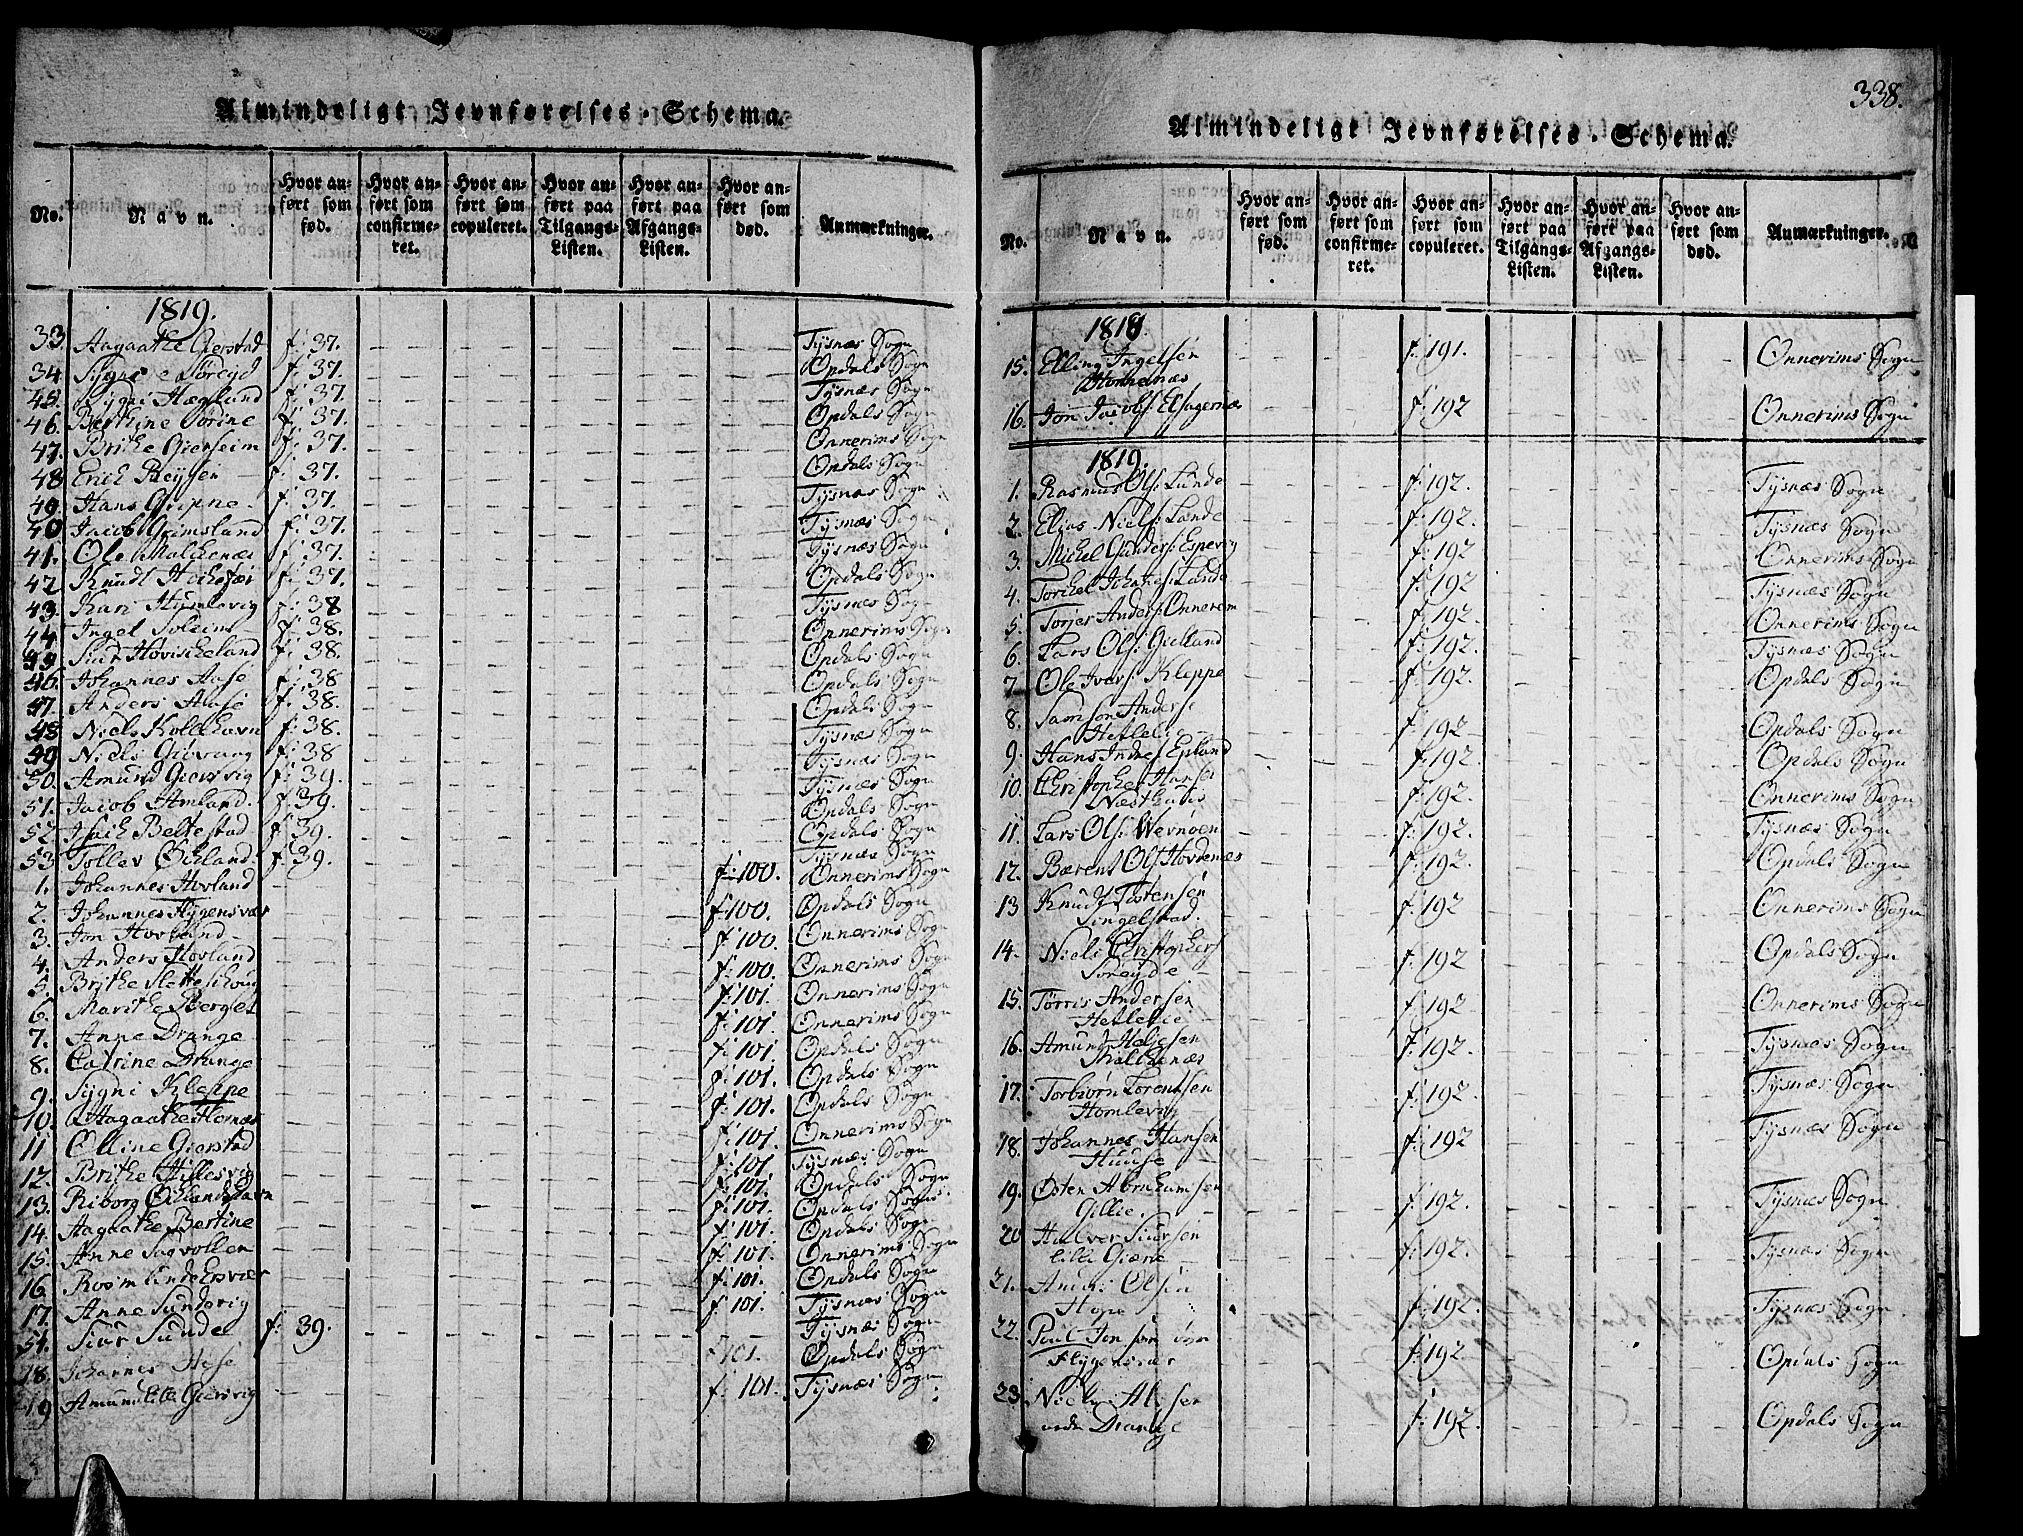 Almindeligt Jevnførelses-Schema.
No.
Navn.
Hvor anført som fød.
Hvor anført som confirmeret.
Hvor anført som copuleret.
Hvor anført paa Tilgangs-Listen.
Hvor anført paa Afgangs-Listen.
Hvor anført som død.
Anmærkninger.
1819.
33. Aagaathe Gierstad f: 37. Tysnæs Sogn
34 Sygne Søreyd f: 37. Opdals Sogn
45. Sygni Hæglund f: 37. Tysnæs Sogn
46. Berthine Sørine f: 37. Opdals Sogn
47. Brithe Gierseim f: 37. Onnerims Sogn
48 Erich Reysen f: 37. Opdals Sogn
49. Hans Gripne f: 37. Tysnæs Sogn
40 Jacob Grimsland f: 37. Tysnæs Sogn
41. Ole Malchenæs f: 37. Tysnæs Sogn
42 Knudt f: 37. Opdals Sogn
43. Kari Humlevig f: 38 Tysnæs Sogn
44 Ingel Soleim f: 38. Onnerims Sogn
45 Siur Hovischeland f: 38. Opdals Sogn
46. Johannes Aase f: 38 Opdals Sogn
47. Anders Aase f: 38. Opdals Sogn
48 Niels Kollehavn f: 38. Tysnæs Sogn
49 Niels f: 38 Tysnæs Sogn
50. Amund Giersvig f: 39. Tysnæs Sogn
51. Jacob Amland. f: 39. Opdals Sogn
52. Isach Beltestad f: 39. Opdals Sogn
53. Tollev Økland. f: 39. Tysnæs Sogn
1. Johannes Hovland f: 100. Onnerims Sogn
2. Johannes Flygensvær f: 100. Opdals Sogn
3. Jon Hovland f: 100. Onnerims Sogn
4. Anders Hovland f: 100. Onnerims Sogn
5. Brithe Sletteschoug f: 101. Onnerims Sogn
6. Marithe Berges f: 101. Onnerims Sogn
7. Anne Drange f: 101. Opdals Sogn
8. Catrine Drange f: 101. Opdals Sogn
9. Sygni Kleppe f: 101. Opdals Sogn
10. Aagaathe f: 101. Onnerims Sogn
11 Olline Gierstad f: 101 Tysnæs Sogn
12. Brithe Hillesvig f: 101. Opdals Sogn
13. Riborg Øklandshavn f: 101. Opdals Sogns
14. Aagaathe Bertine f: 101. Opdals Sogn
15. Anne Sagvollen f: 101. Onnerims Sogn
16. f: 101. Opdals Sogn
17. Anne Sundvig f: 101. Tysnæs Sogn
54. Siur Sunde f: 39. Tysnæs Sogn
18. Johannes f: 101. Opdals Sogn
19 Amund Lile Giersvig f: 101. Tysnæs Sogn
338.
Almindeligt Jevnførelses-Schema.
No.
Navn.
Hvor anført som fød.
Hvor anført som confirmeret.
Hvor anført som copuleret.
Hvor anført paa Tilgangs-Listen.
Hvor anført paa Afgangs-Listen.
Hvor anført som død.
Anmærkninger.
1818
15. Elling Ingelsen f: 191. Onnerims Sogn
16. Jon Jacobs: f: 192 Onnerims Sogn
1819.
1. Rasmus Ols: Lunde f: 192. Tysnæs Sogn
2. Elias Niels: Lande f: 192. Tysnæs Sogn
3. Michel Gunders: Espevig f: 192 Onnerims Sogn
4. Torchel Johanes: Lande f: 192 Tysnæs Sogn
5. Torjer Anders: Onnerem f: 192. Onnerims Sogn
6. Lars Ols: Gielland f: 192. Tysnæs Sogn
7. Ole Ivers: Kleppe f: 192. Opdals Sogn
8. Samson Anderse
Hetlelie f: 192 Opdals Sogn
9. Hans Epland f: 192. Opdals Sogn
10. Christopher Hanse
Næsthuus f: 192. Onnerims Sogn
11. Lars Ols: Wernøen f: 192. Tysnæs Sogn
12. Bærent Ols Hovdenæs f: 192. Opdals Sogn
13 Knudt Tostensen
Singelstad. f: 192 Onnerims Sogn
14. Niels Christophers
Søreyde f: 192 Opdals Sogn
15. Tørris Andersen
Hetlelie f: 192 Onnerims Sogn
16. Amund Heljesen
Malchenæs f: 192. Tysnæs Sogn
17. Torbiørn Lorentsen
Homlevig f: 192. Tysnæs Sogn
18. Johannes Hansen
Huuse f: 192 Tysnæs Sogn
19. Østen Abrahamsen
Gillie. f: 192. Tysnæs Sogn
20 Halver Siursen
Lille Giære f: 192. Tysnæs Sogn
21. Anders Olsen
Hope f: 192. Tysnæs Sogn
22. Poul Jonsen
Flygensvær f: 192 Opdals Sogn
23. Niels
Drange f: 192. Opdals Sogn